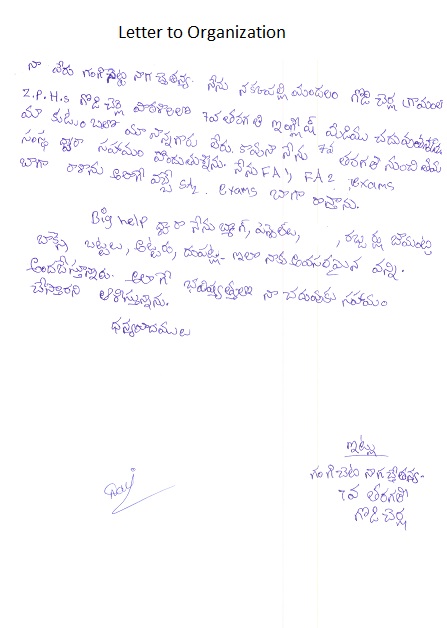 Letter to Organization
నా పేరు గంగిచెట్టి నాగ చైతన్య. నేను నక్కపల్లి మండలం గొడిచెర్ల గ్రామం
Z.P.H.s గొడిచెర్ల పాఠశాలలో 7వ తరగతి ఇంగ్లీష్ మీడియం చదువుతున్నాను
మా కుటుంబంలో మా నాన్నగారు లేరు. కావున నేను 7వ తరగతి నుంచి
సంస్థ ద్వారా సహాయం పొందుతున్నాను. నేను FA1, FA2, exams
బాగా రాశాను అలాగే SA2. exams బాగా రాస్తాను.
Big help ద్వారా నేను బ్యాగ్, పెన్సిల్లు, రబ్బర్లు
బాక్స్ బట్టలు, దుప్పట్లు ఇలా నాకు అవసరమైనవన్నీ
అందజేస్తున్నారు. అలాగే భవిష్యత్తులో నా చదువుకు సహాయం
చేస్తారని ఆశిస్తున్నాను.
ధన్యవాదములు
ఇట్లు
గంగిచెట్టి నాగ చైతన్య
7వ తరగతి
గొడిచెర్ల